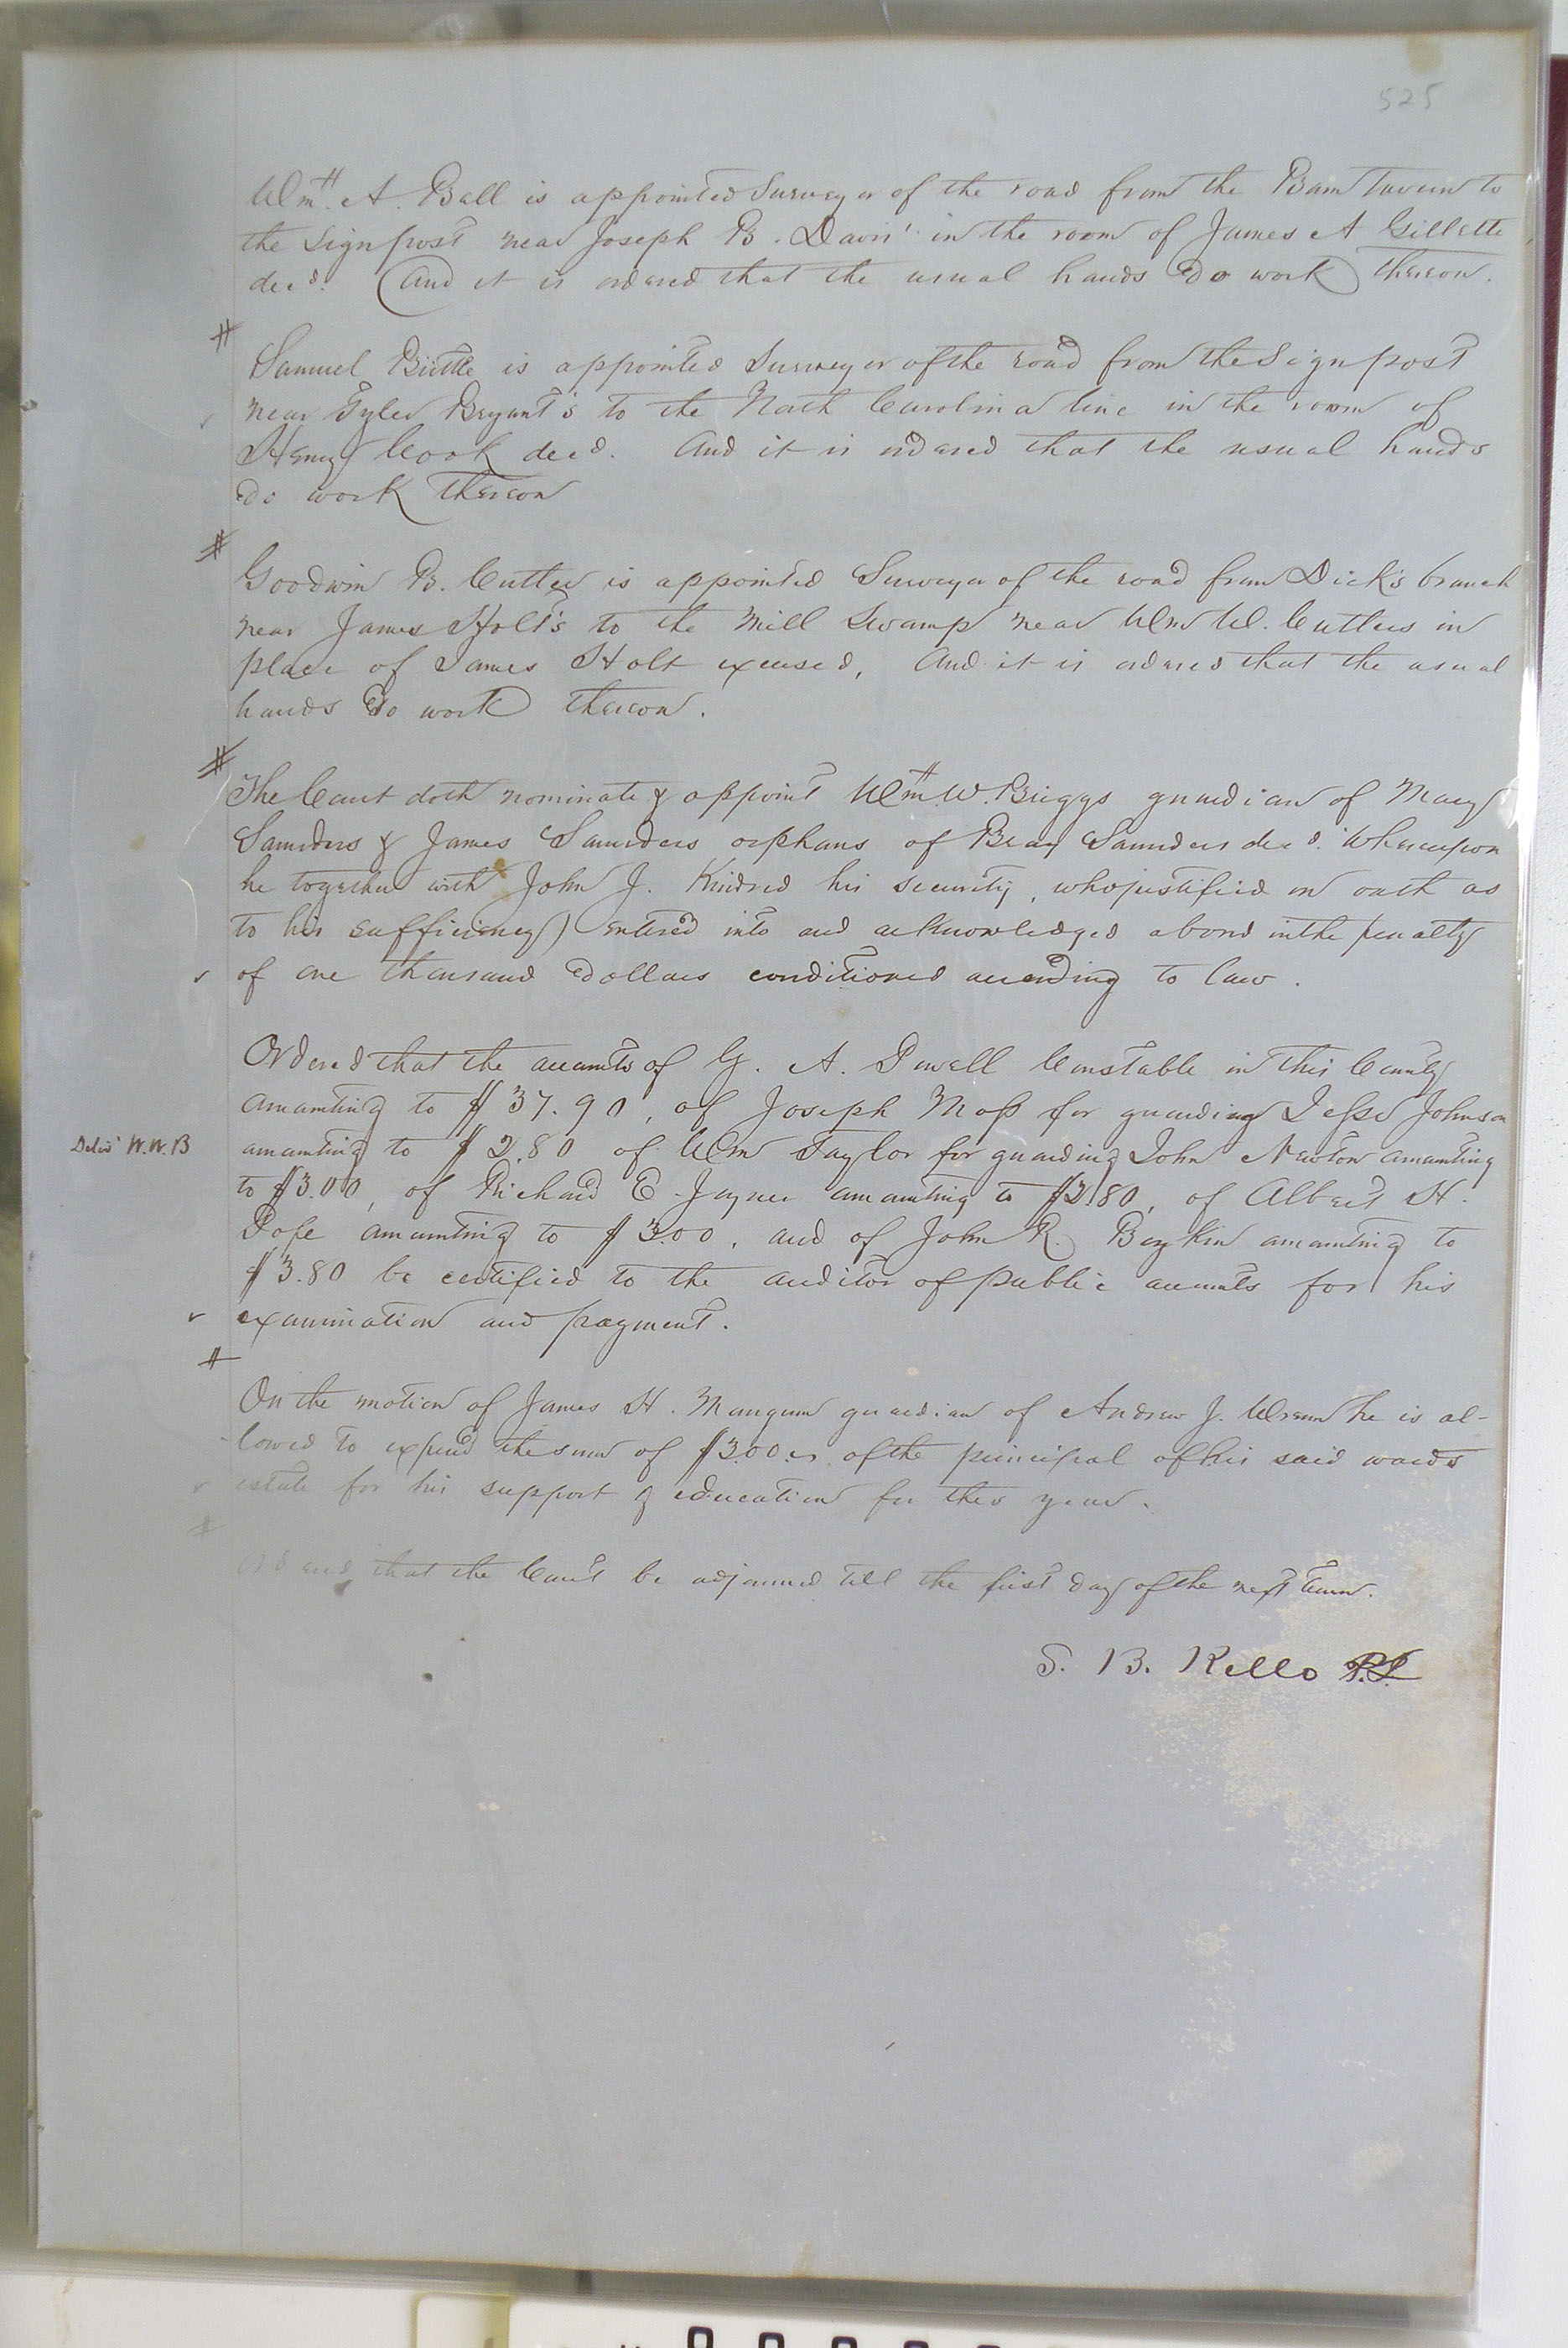 525
Wm. A. Bell is appointed Surveyor of the road from the Barn Tavern to
the Sign post near Joseph B. Davis' in the room of James A Gillette
decd. And it is ordered that the usual hands do work thereon.
Samuel is appointed Surveyor of the road from the Sign post
near Tyler Bryant's to the North Carolina line in the room of
Henry Cook decd. And it is ordered that the usual hands
do work thereon
Goodwin B. Cutler is appointed Surveyor of the road from Dick's branch
near James Holt's to the Mill Swamp near Wm W. Cutlers in
place of James Holt excused, And it is ordered that the usual
hands do work thereon.
The Court doth nominate & appoint Wm. W. Briggs guardian of Mary
Saunders & James Saunders orphans of Bray Saunders decd. Whereupon
he together with John J. Kindred his security, who justified on oath as
to his sufficiency) entered into and acknowledged a bond in the penalty
of one thousand Dollars conditioned according to law.
Ordered that the accounts of G. A. Powell Constable in this County
amounting to $37.90, of Joseph Moss for guarding Jesse Johnson
Delivd W.W.B
amounting to $2.80 of Wm Taylor for guarding John Newton amounting
to $3.00, of Richard E. Joyner amounting to $2.80, of Albert H.
Pope amounting to $3.00, and of John R. Boykin amounting to
$3.80 be certified to the auditor of public accounts for his
examination and payment.
On the motion of James H. Mangum guardian of Andrew J. Wrenn he is al-
lowed to expend the sum of of the principal of his said wards
estate for his support & education for this year.
Ordered that the Court be adjourned till the first day of the next Term.
S. B. Kello